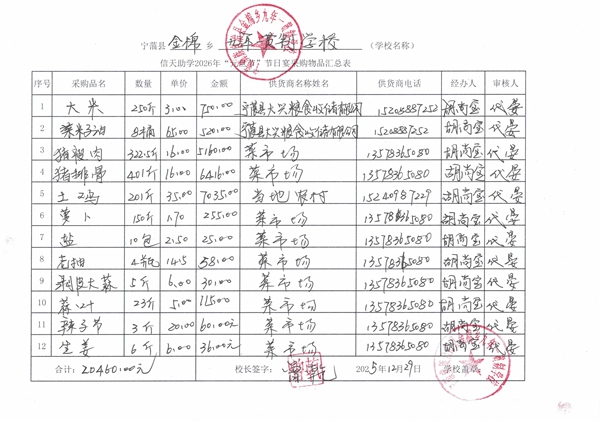 宁蒗县 金棉 乡 九年一贯制学校 （学校名称）
信天助学2026年“元旦节”节日宴采购物品汇总表
序号 采购品名 数量 单价 金额 供货商名姓名 供货商电话 经办人 审核人
1 大米 250斤 3.00 750.00 宁蒗县大兴粮食收储有限公司 15208887252 胡尚宝 代晏
2 菜籽油 8桶 65.00 520.00 宁蒗县大兴粮食收储有限公司 胡尚宝 代晏
3 猪腿肉 322.5斤 16.00 5160.00 菜市场 13578365080 胡尚宝 代晏
4 猪排骨 401斤 16.00 6416.00 菜市场 13578365080 胡尚宝 代晏
5 土鸡 201斤 35.00 7035.00 当地农村 15240987229 胡尚宝 代晏
6 萝卜 150斤 1.70 255.00 菜市场 13578365080 胡尚宝 代晏
7 盐 10包 2.50 25.00 菜市场 13578365080 胡尚宝 代晏
8 老抽 4瓶 14.5 58.00 菜市场 13578365080 胡尚宝 代晏
9 剥皮大蒜 5斤 6.00 30.00 菜市场 13578365080 胡尚宝 代晏
10 23斤 5.00 115.00 菜市场 13578365080 胡尚宝 代晏
11 3斤 20.00 60.00元 菜市场 13578365080 胡尚宝 代晏
12 生姜 6斤 6.00 36.00元 菜市场 13578365080 胡尚宝 代晏
合计：20460.00元 校长签字： 2025年12月29日 学校盖章：